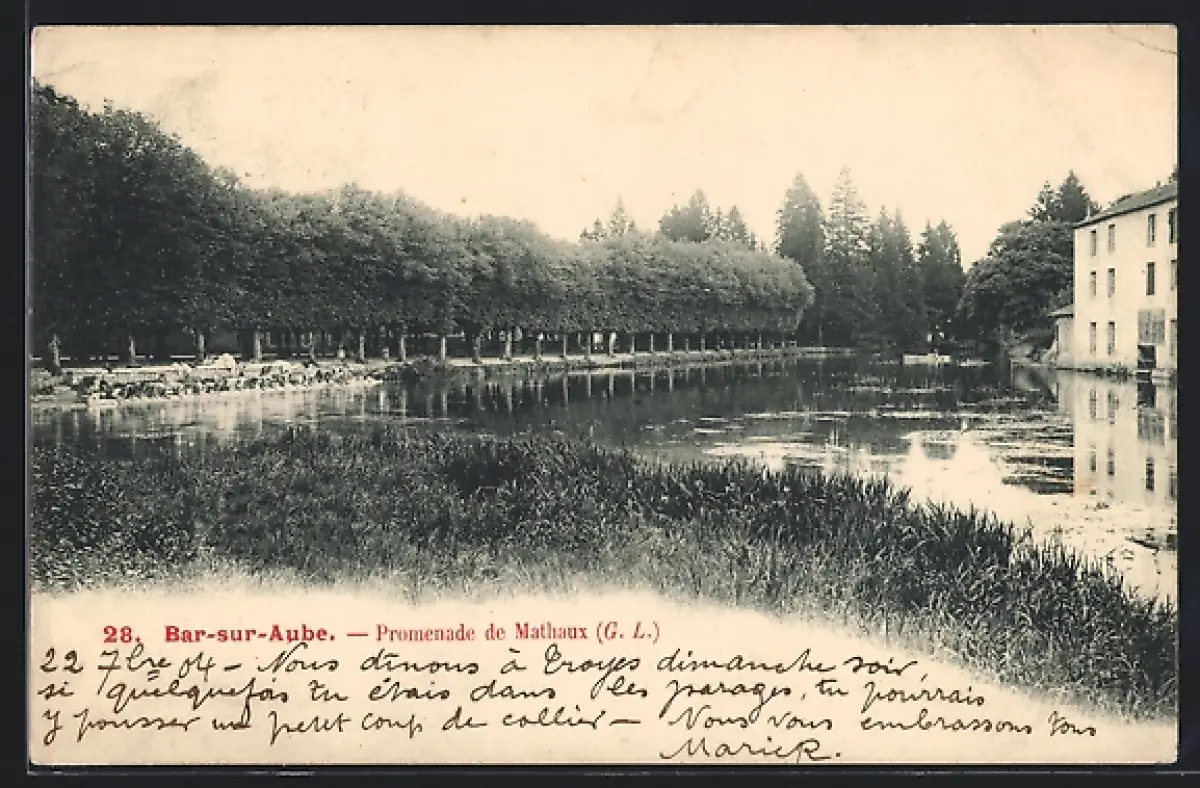 28. Bar-sur-Aube. — Promenade de Mathaux (G. L.)
22 7bre 04 – Nous dînons à Troyes dimanche soir,
si quelquefois tu étais dans les parages, tu pourrais
y pousser un petit coup de collier – Nous vous embrassons tous
Marick.